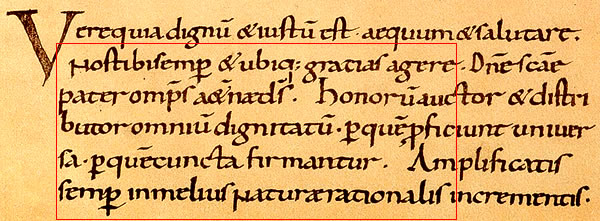 Vere quia dignū & iustū est · aequum & salutare.
Nos tibi semp̄ & ubiq; gratias agere · Dn̄e scāe
pater omp̄s aet̄nae d̄s. Honorū auctor & distri
butor omniū dignitatū · p̱ quē p̱ficiunt univer
sa · p̱ quē cuncta firmantur. Amplificatis
semp̱ in melius naturae rationalis incrementis.